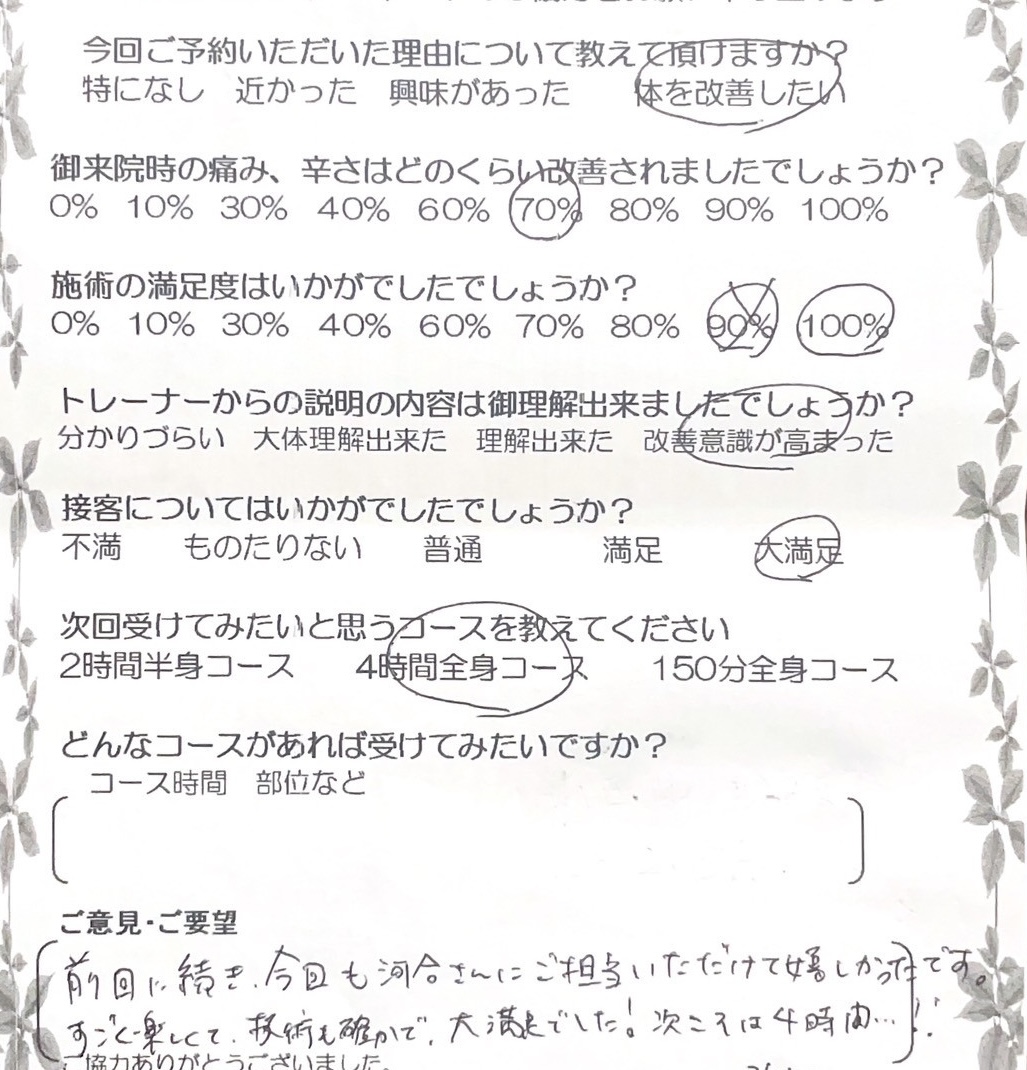 今回ご予約いただいた理由について教えて頂けますか?
特になし 近かった 興味があった 体を改善したい
御来院時の痛み、辛さはどのくらい改善されましたでしょうか?
0% 10% 30% 40% 60% 70% 80% 90% 100%
施術の満足度はいかがでしたでしょうか?
0% 10% 30% 40% 60% 70% 80% 90% 100%
トレーナーからの説明の内容は御理解出来ましたでしょうか?
分かりづらい 大体理解出来た 理解出来た 改善意識が高まった
接客についてはいかがでしたでしょうか?
不満 ものたりない 普通 満足 大満足
次回受けてみたいと思うコースを教えてください
2時間半身コース 4時間全身コース 150分全身コース
どんなコースがあれば受けてみたいですか?
コース時間 部位など
ご意見・ご要望
前回に続き、今回も河合さんにご担当いただけて嬉しかったです。
すごく楽しくて、技術も確かで、大満足でした!次こそは4時間…!!
ご協力ありがとうございました。